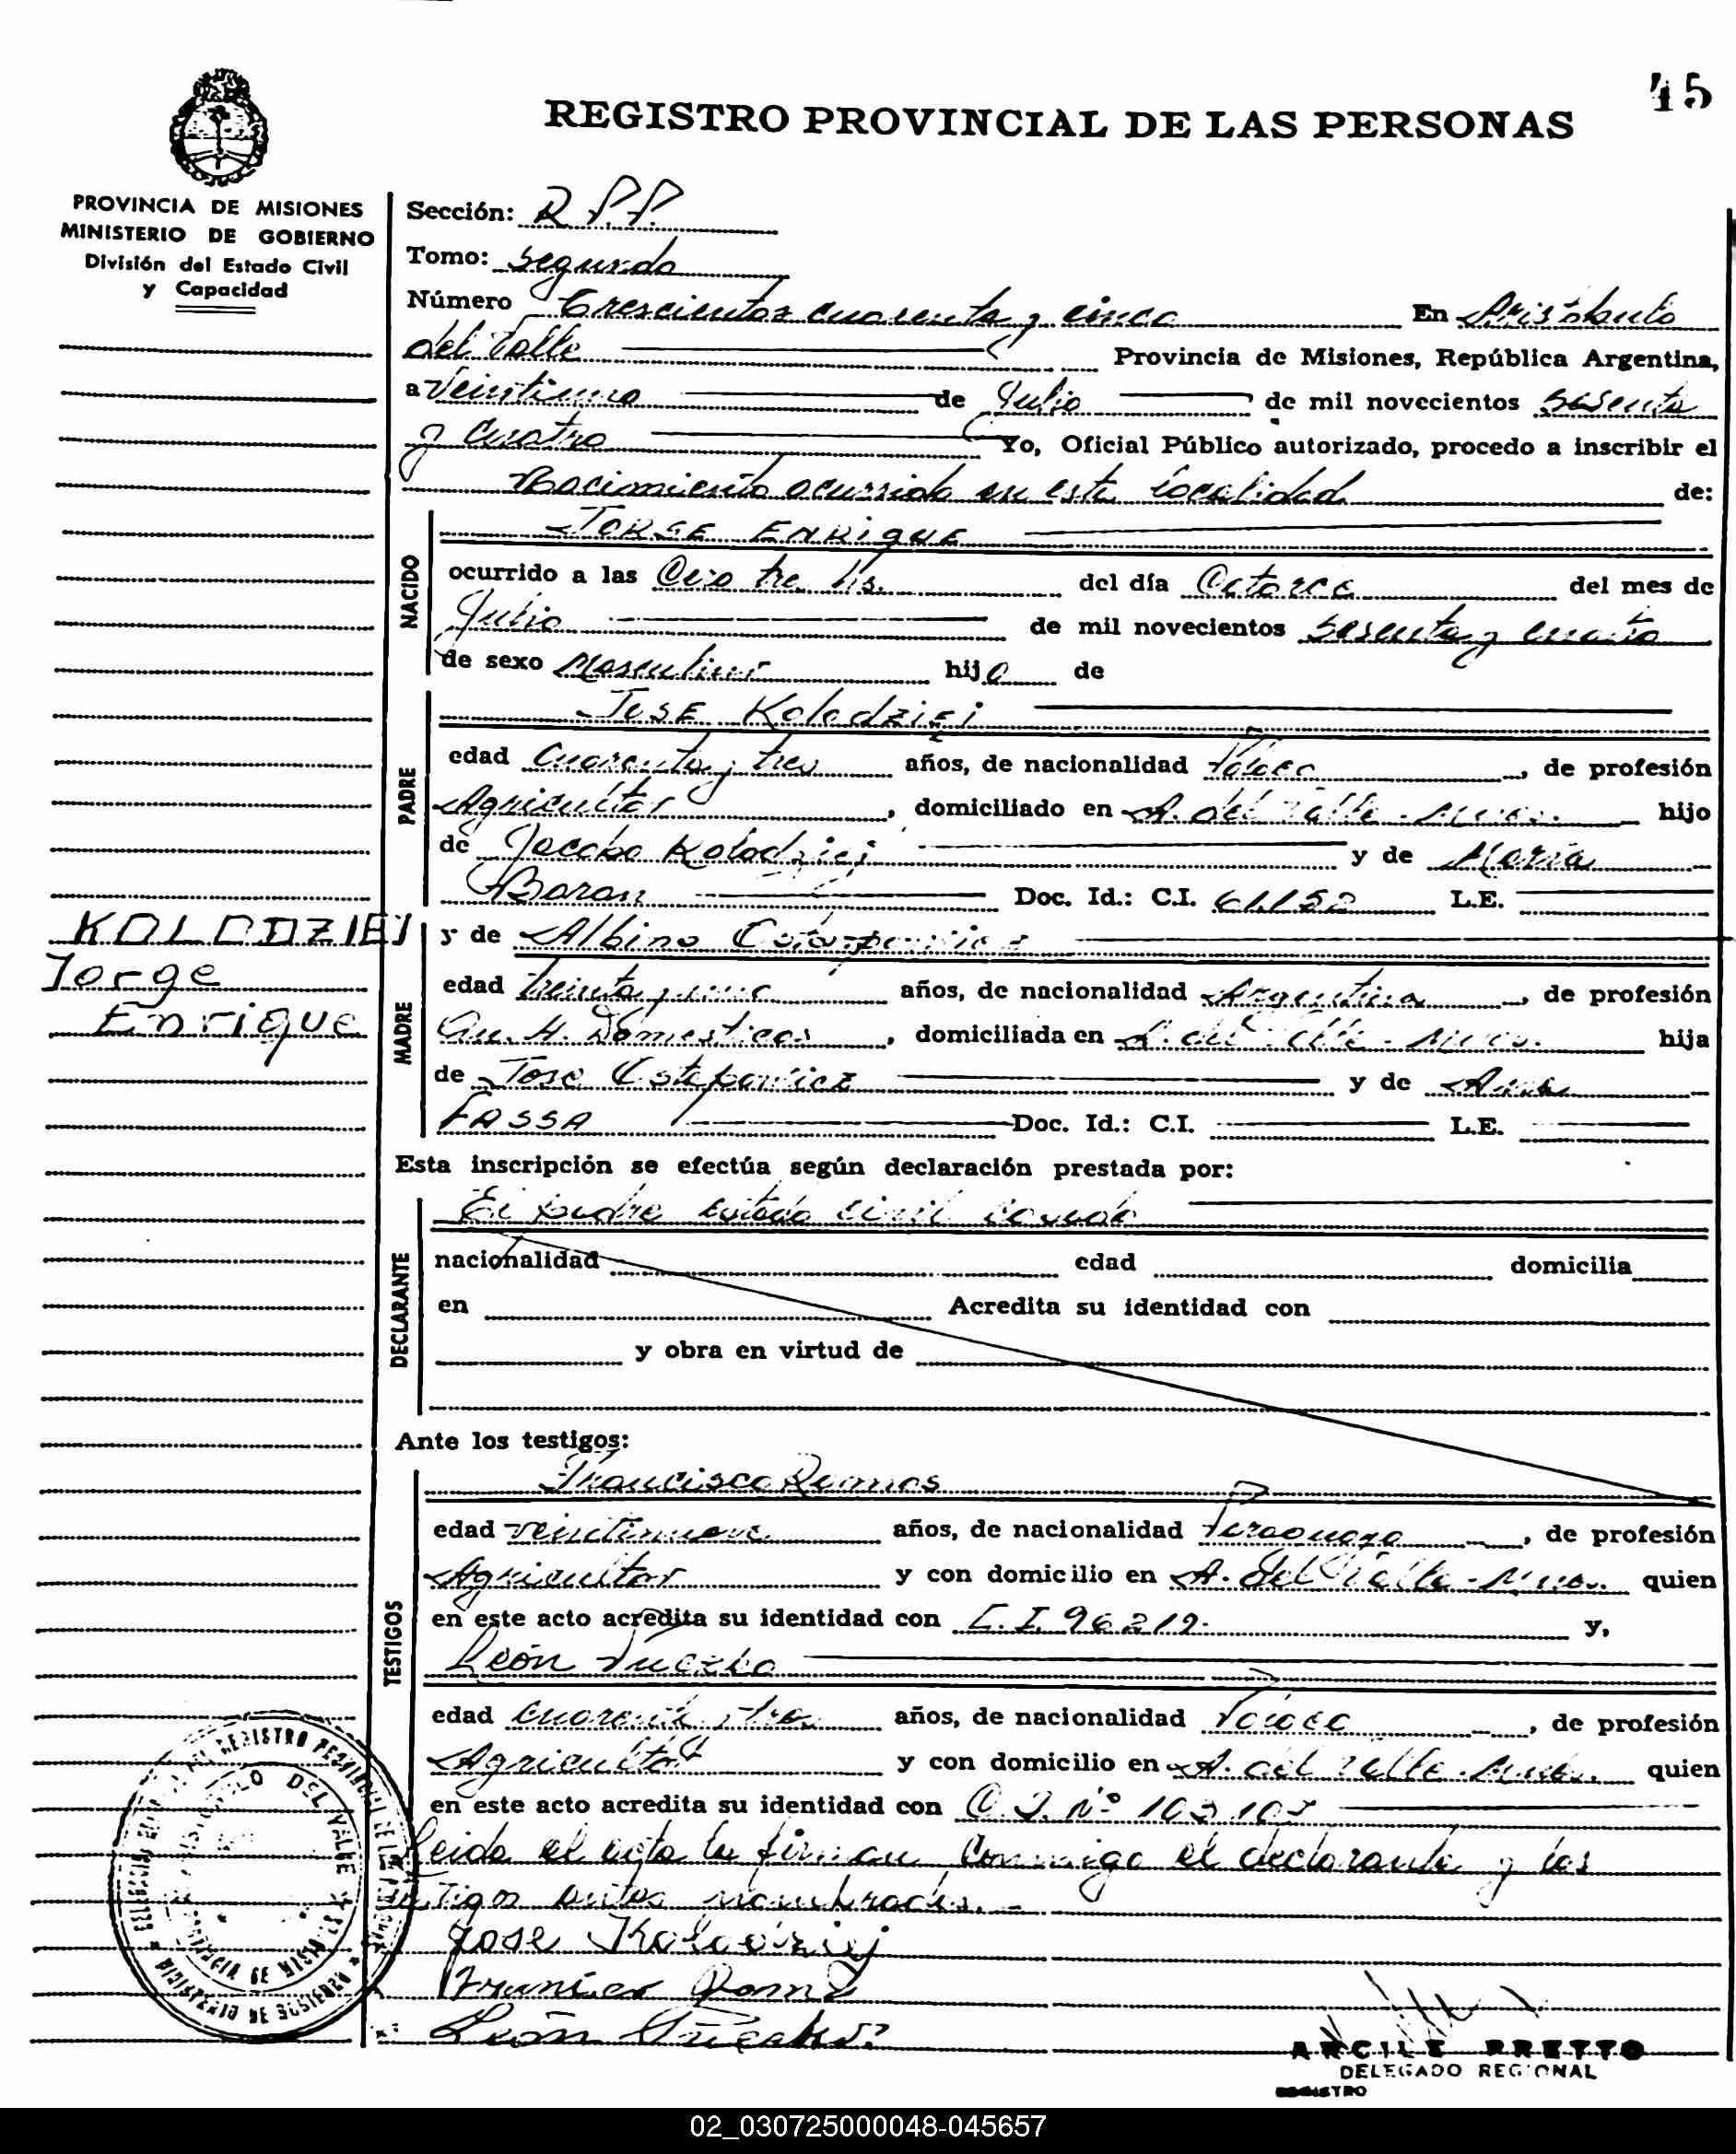 45
REGISTRO PROVINCIAL DE LAS PERSONAS
PROVINCIA DE MISIONES
MINISTERIO DE GOBIERNO
División del Estado Civil
y Capacidad
Sección: R.P.P.
Tomo: Segundo
Número Trescientos cuarenta y cinco En Aristóbulo
del Valle Provincia de Misiones, República Argentina,
a Veintiuno de Julio de mil novecientos sesenta
y Cuatro Yo, Oficial Público autorizado, procedo a inscribir el
Nacimiento ocurrido en esta localidad de:
NACIDO
JORGE ENRIQUE
ocurrido a las Cero tres Hs. del día Catorce del mes de
Julio de mil novecientos Sesenta y cuatro
de sexo Masculino hijo de
PADRE
JOSE Kolodziej
edad Cuarenta y tres años, de nacionalidad Polaca, de profesión
Agricultor, domiciliado en A. del Valle - Mnes. hijo
de Jacobo Kolodziej y de María
Baran Doc. Id.: C.I. 61.152 L.E.
KOLODZIEJ
Jorge
Enrique
MADRE
y de Albina
edad treinta y uno años, de nacionalidad Argentina, de profesión
Qu. H. Domesticos, domiciliada en A. del Valle - Mnes. hija
de Jose y de Ana
FASSA Doc. Id.: C.I. L.E.
Esta inscripción se efectúa según declaración prestada por:
DECLARANTE
El padre estado civil casado
nacionalidad edad domicilia
en Acredita su identidad con
y obra en virtud de
Ante los testigos:
TESTIGOS
Francisco Ramos
edad veintinueve años, de nacionalidad Paraguaya, de profesión
Agricultor y con domicilio en A. del Valle - Mnes. quien
en este acto acredita su identidad con C.I. 96219. y,
León
edad Cuarenta y tres años, de nacionalidad Polaca, de profesión
Agricultor y con domicilio en A. del Valle - Mnes. quien
en este acto acredita su identidad con C.I. Nº
Leida el acta la firman conmigo el declarante y los
testigos antes nombrados.-
Jose Kolodziej
León
DEL VALLE
MINISTERIO DE GOBIERNO
ARCILE PRETTO
DELEGADO REGIONAL
REGISTRO
02_030725000048-045657